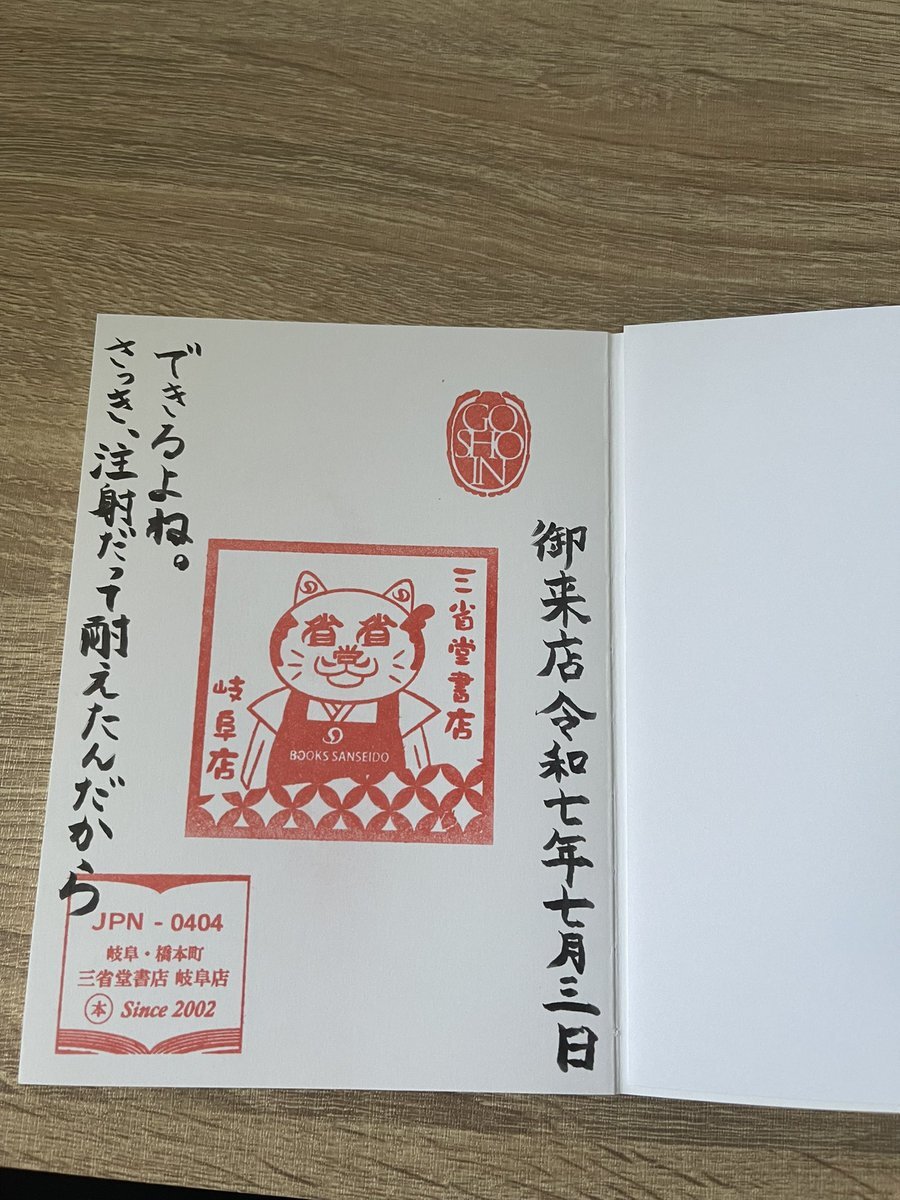 GO
SHO
IN
御来店令和七年七月三日
三省堂書店
省省
堂
BOOKS SANSEIDO
岐阜店
できるよね。
さっき、注射だって耐えたんだから
JPN - 0404
岐阜・橋本町
三省堂書店 岐阜店
本 Since 2002